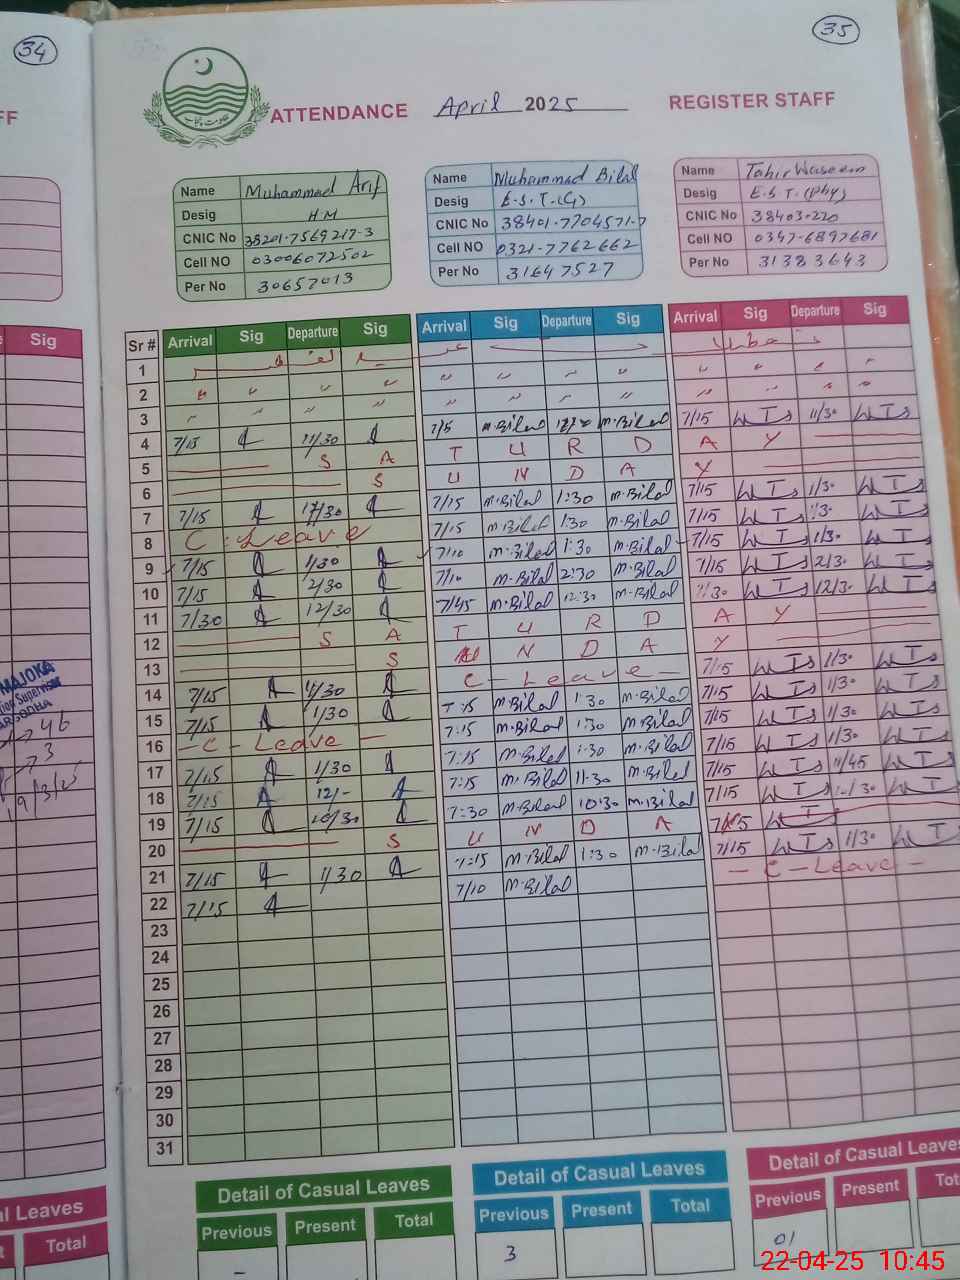 34
35
FF
ATTENDANCE April 2025 REGISTER STAFF
Name Muhammad Arif
Desig H.M
CNIC No 38201-7569217-3
Cell NO 03006072502
Per No 30657013
Name Muhammad Bilal
Desig E.S.T.(G)
CNIC No 38401-7704571-7
Cell NO 0321-7762662
Per No 31647527
Name Tahir Waseem
Desig E.S.T.(Phy)
CNIC No 38403-220
Cell NO 0347-6897681
Per No 31383643
Sig
Sr # Arrival Sig Departure Sig Arrival Sig Departure Sig Arrival Sig Departure Sig
1
2 " " " " " " " " " " " "
3 " " " " " " " " " " " "
4 7/15 11/30 7/5 M.Bilal M.Bilal 7/15 11/30
5 S A T U R D A Y
6 S U N D A Y
7 7/15 7/15 M.Bilal 1:30 M.Bilal 7/15 1/30
8 C. Leave 7/15 M.Bilal 1:30 M.Bilal 7/15
9 7/15 1/30 7/10 M.Bilal 1:30 M.Bilal 7/15 1/30
10 7/15 2/30 7/10 M.Bilal 2:30 M.Bilal 7/15 2/30
11 7/30 12/30 7/45 M.Bilal 12:30 M.Bilal 12/30
12 S A T U R D A Y
13 S U N D A Y
14 7/15 1/30 C - Leave - 7/15 1/30
15 7/15 1/30 7:15 M.Bilal 1:30 M.Bilal 7/15 1/30
16 - C - Leave - 7:15 M.Bilal 1:30 M.Bilal 7/15 1/30
17 7/15 1/30 7:15 M.Bilal 1:30 M.Bilal 7/15 1/30
18 7/15 12/- 7:15 M.Bilal 11:30 M.Bilal 7/15 11/45
19 7/15 10/30 7:30 M.Bilal 10:30 M.Bilal 7/15
20 S U N D A Y
21 7/15 1/30 7:15 M.Bilal 1:30 M.Bilal 7/15 1/30
22 7/15 7/10 M.Bilal - C - Leave -
23
24
25
26
27
28
29
30
31
MAJOKA
46
3
Leaves
Total
Detail of Casual Leaves
Previous Present Total
-
Detail of Casual Leaves
Previous Present Total
3
Detail of Casual Leaves
Previous Present
01
22-04-25 10:45